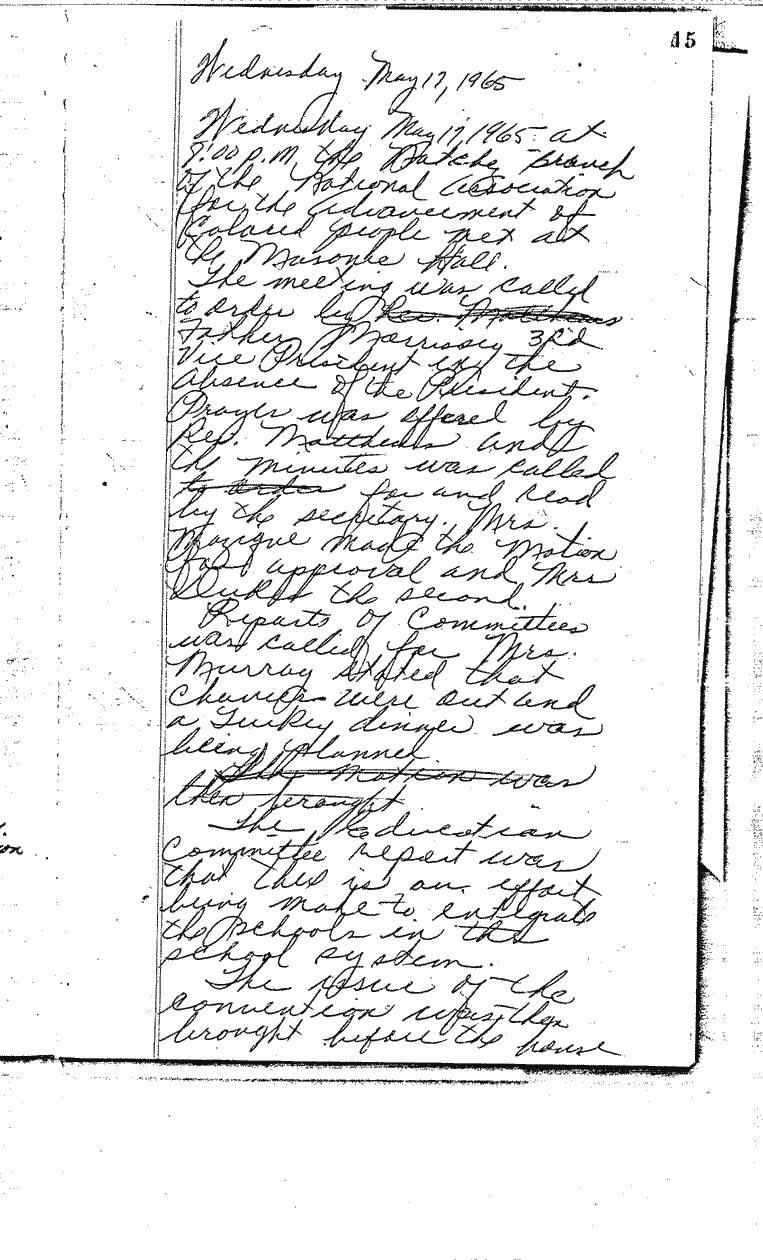 15
Wednesday May 17, 1965
Wednesday May 17, 1965 at
7:00 p.m. the Natchez Branch
of the National Association
for the Advancement of
Colored people met at
the Masonic Hall.
The meeting was called
to order by Rev. Matthews
Father Morrissey 3rd
Vice President in the
absence of the President.
Prayer was offered by
Rev. Matthews and
the minutes was called
to order for and read
by the secretary. Mrs.
made the motion
for approval and Mrs
the second.
Reports of Committees
was called for Mrs.
Murray stated that
were out and
a Turkey dinner was
being planned.
The motion was
then brought
The Education
Committee report was
that this is an effort
being make to entegrate
the schools in this
school system.
The issue of the
convention was then
brought before the house